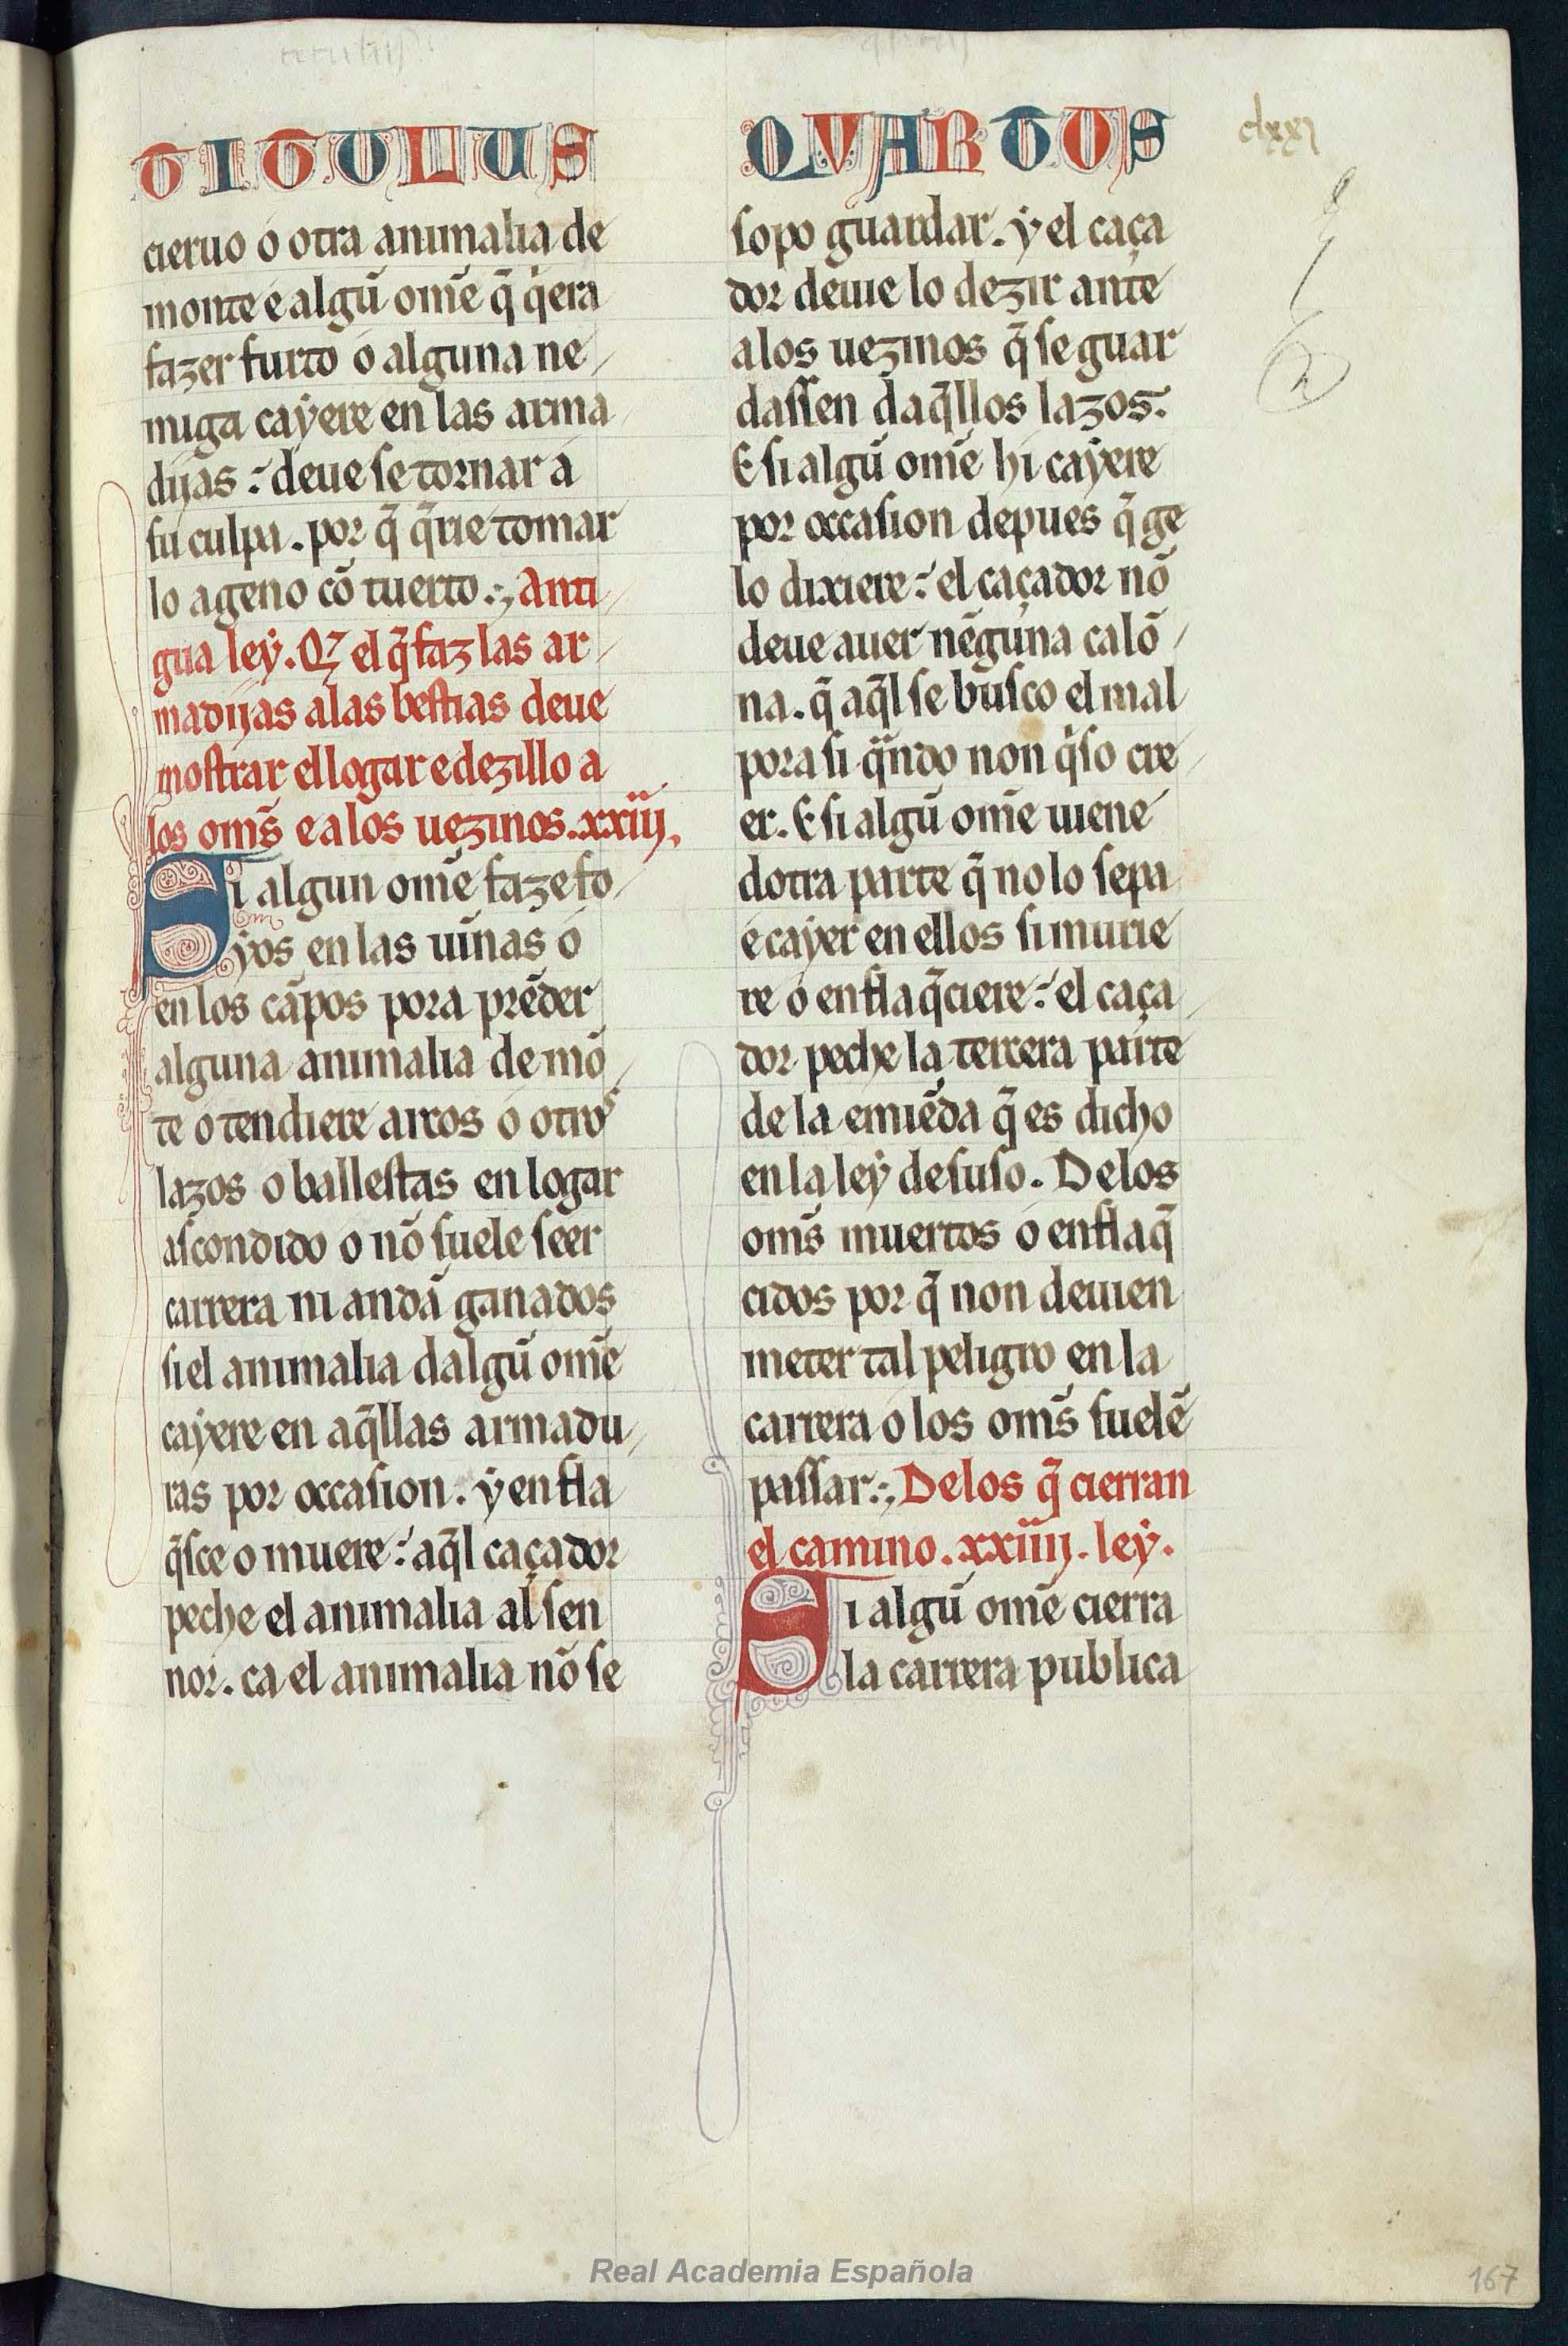 TITULUS QVARTUS
clxxj
cieruo o otra animalia de
monte e algũ om̃e q̃ q̇era
fazer furto o alguna ne
miga cayere en las arma
dijas : deue se tornar a
su culpa . por q̃ q̃rie tomar
lo ageno cõ tuerto . Anti
gua ley . Qr el q̃ faz las ar
madijas a las bestias deue
mostrar el logar e dezillo a
los oms̃ e a los uezinos . xxiij .
Si algun om̃e faze fo
yos en las uinas o
en los cãpos pora prẽder
alguna animalia de mõ
te o tendiere arcos o otros
lazos o ballestas en logar
ascondido o nõ suele seer
carrera ni andã ganados
si el animalia dalgũ om̃e
cayere en aq̃llas armadu
ras por occasion . y enfla
q̃sce o muere : aq̃l caçador
peche el animalia al sen
nor . ca el animalia nõ se
sopo guardar . y el caça
dor deuie lo dezir ante
a los uezinos q̃ se guar
dassen daq̃llos lazos .
E si algũ om̃e hi cayere
por occasion depues q̃ ge
lo dixiere : el caçador nõ
deue auer nẽguna calõ
na . q̃ aq̃l se busco el mal
pora si q̃ndo non q̇so cre
er . E si algũ om̃e uiene
dotra parte q̃ no lo sepa
e cayer en ellos si murie
re o enflaq̃ciere : el caça
dor peche la tercera parte
de la emiẽda q̃ es dicho
en la ley de suso . De los
oms̃ muertos o enflaq̃
cidos por q̃ non deuien
meter tal peligro en la
carrera o los oms̃ suelẽ
passar . De los q̃ cierran
el camino . xxiiij . ley .
Si algũ om̃e cierra
la carrera publica
Real Academia Española
167